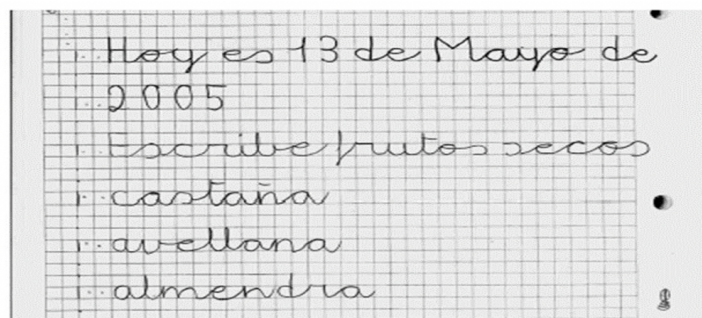 Hoy es 13 de Mayo de
2005
Escribe frutos secos
castaña
avellana
almendra